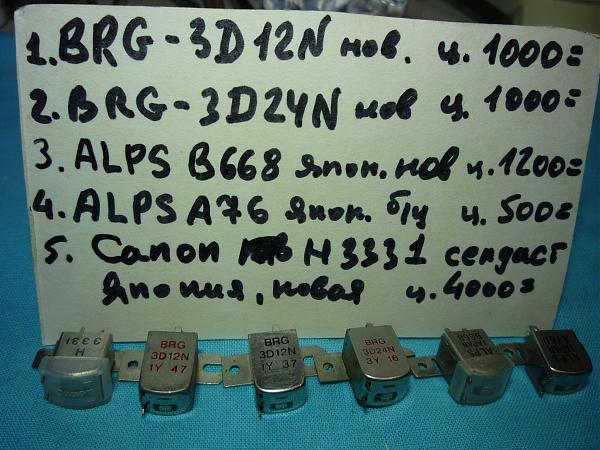 1. BRG-3D12N нов. ц. 1000=
2. BRG-3D24N нов ц. 1000=
3. ALPS B668 япон. нов ц. 1200=
4. ALPS A76 япон. б/у ц. 500=
5. Canon H3331 сендаст
Япония, новая ц. 4000=
H
3331
BRG
3D12N
1Y 47
BRG
3D12N
1Y 37
BRG
3D24N
3Y 16
ALPS
JAPAN
B668
ALPS
JAPAN